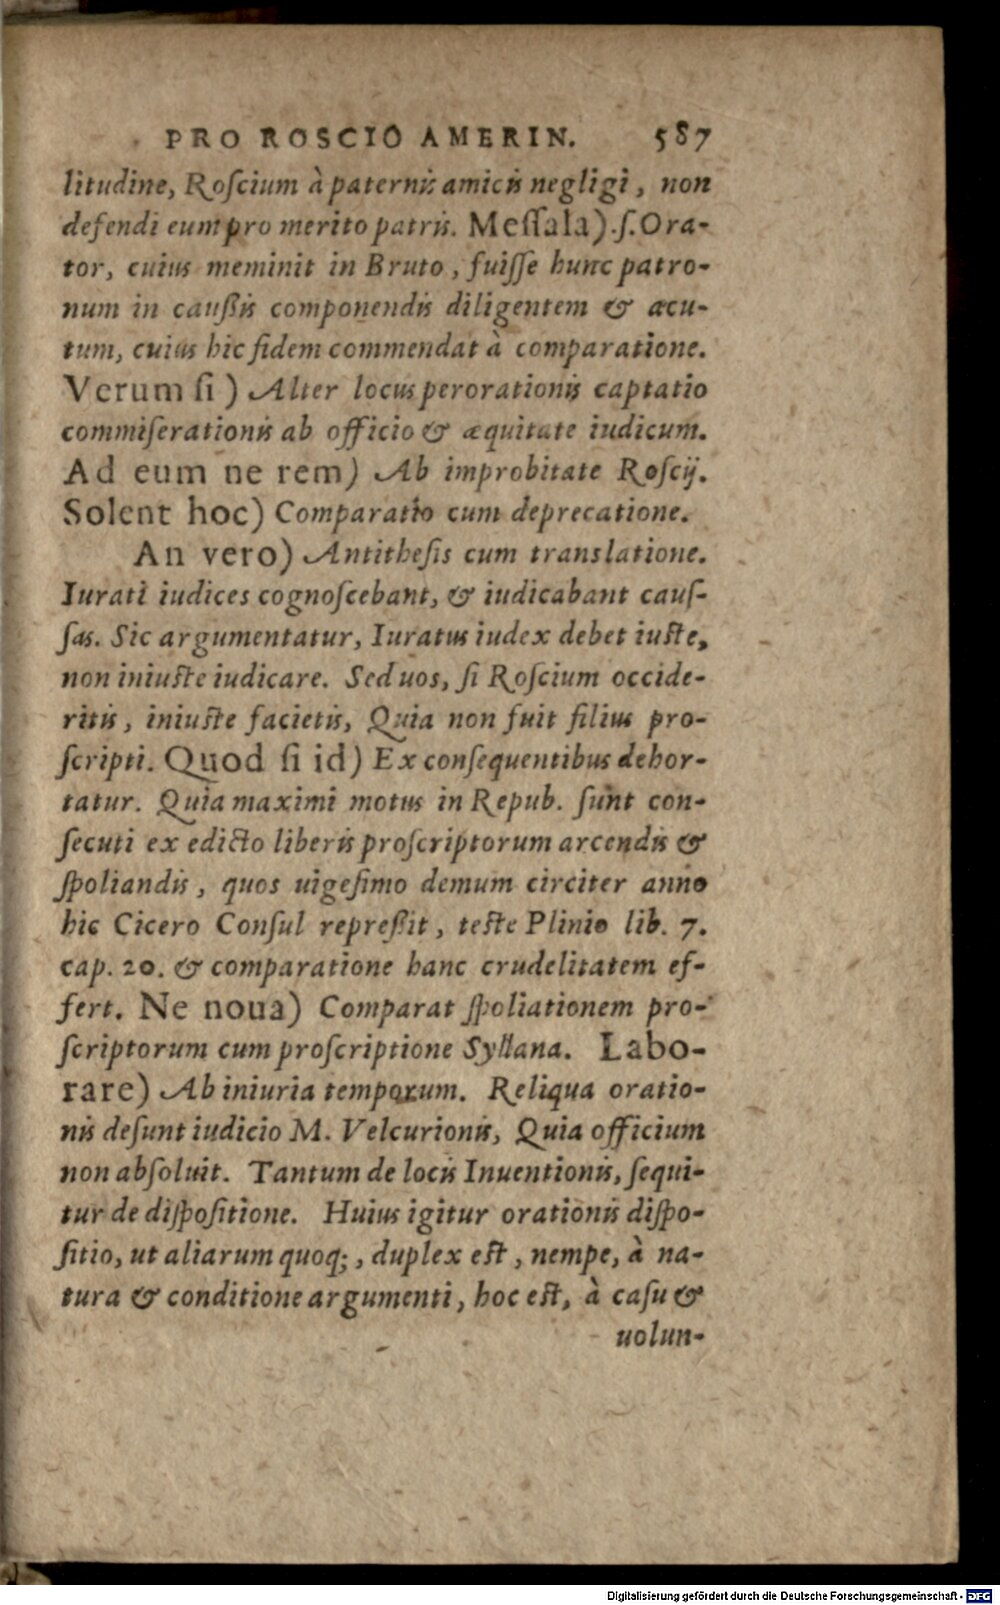 PRO ROSCIO AMERIN. 587
litudine, Roſcium à paternis amicis negligi, non
defendi eum pro merito patris. Meſſala).ſ.Ora-
tor, cuius meminit in Bruto, fuiſſe hunc patro-
num in caußis componendis diligentem & acu-
tum, cuius hic fidem commendat à comparatione.
Verum ſi) Alter locus perorationis captatio
commiſerationis ab officio & æquitate iudicum.
Ad eum ne rem) Ab improbitate Roſcij.
Solent hoc) Comparatio cum deprecatione.
An vero) Antitheſis cum translatione.
Iurati iudices cognoſcebant, & iudicabant cauſ-
ſas. Sic argumentatur, Iuratus iudex debet iuſte,
non iniuſte iudicare. Sed uos, ſi Roſcium occide-
ritis, iniuſte facietis, Quia non fuit filius pro-
ſcripti. Quod ſi id) Ex conſequentibus dehor-
tatur. Quia maximi motus in Repub. ſunt con-
ſecuti ex edicto liberis proſcriptorum arcendis &
ſpoliandis, quos uigeſimo demum circiter anno
hic Cicero Conſul repreßit, teſte Plinio lib. 7.
cap. 20. & comparatione hanc crudelitatem ef-
fert. Ne noua) Comparat ſpoliationem pro-
ſcriptorum cum proſcriptione Syllana. Labo-
rare) Ab iniuria temporum. Reliqua oratio-
nis deſunt iudicio M. Velcurionis, Quia officium
non abſoluit. Tantum de locis Inuentionis, ſequi-
tur de diſpoſitione. Huius igitur orationis diſpo-
ſitio, ut aliarum quoq;, duplex eſt, nempe, à na-
tura & conditione argumenti, hoc eſt, à caſu &
uolun-
Digitalisierung gefördert durch die Deutsche Forschungsgemeinschaft - DFG